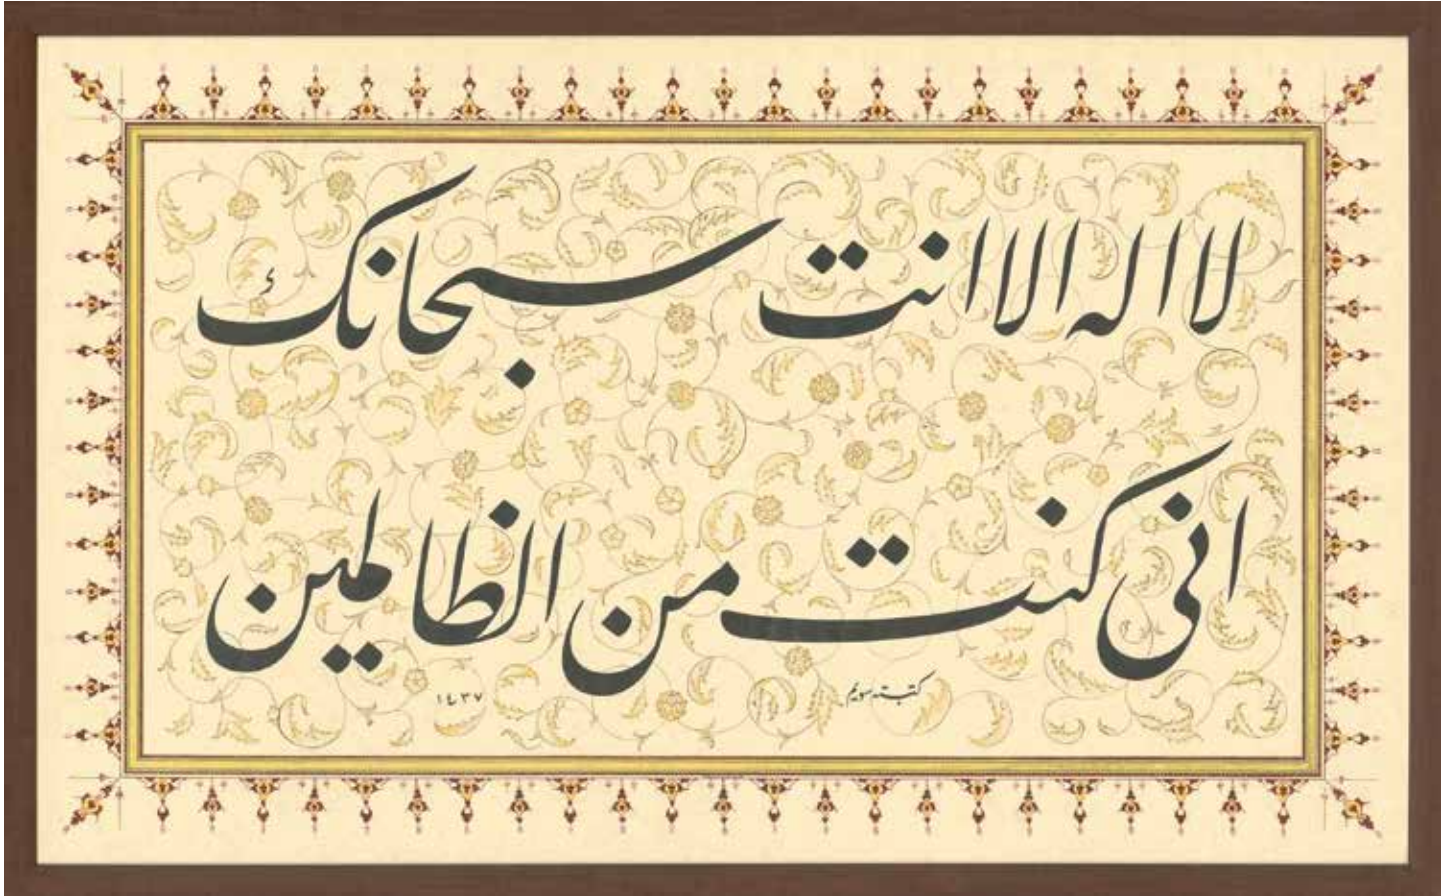 لا اله الا انت سبحانك
انى كنت من الظالمين
كتبته سويم
١٤٣٧